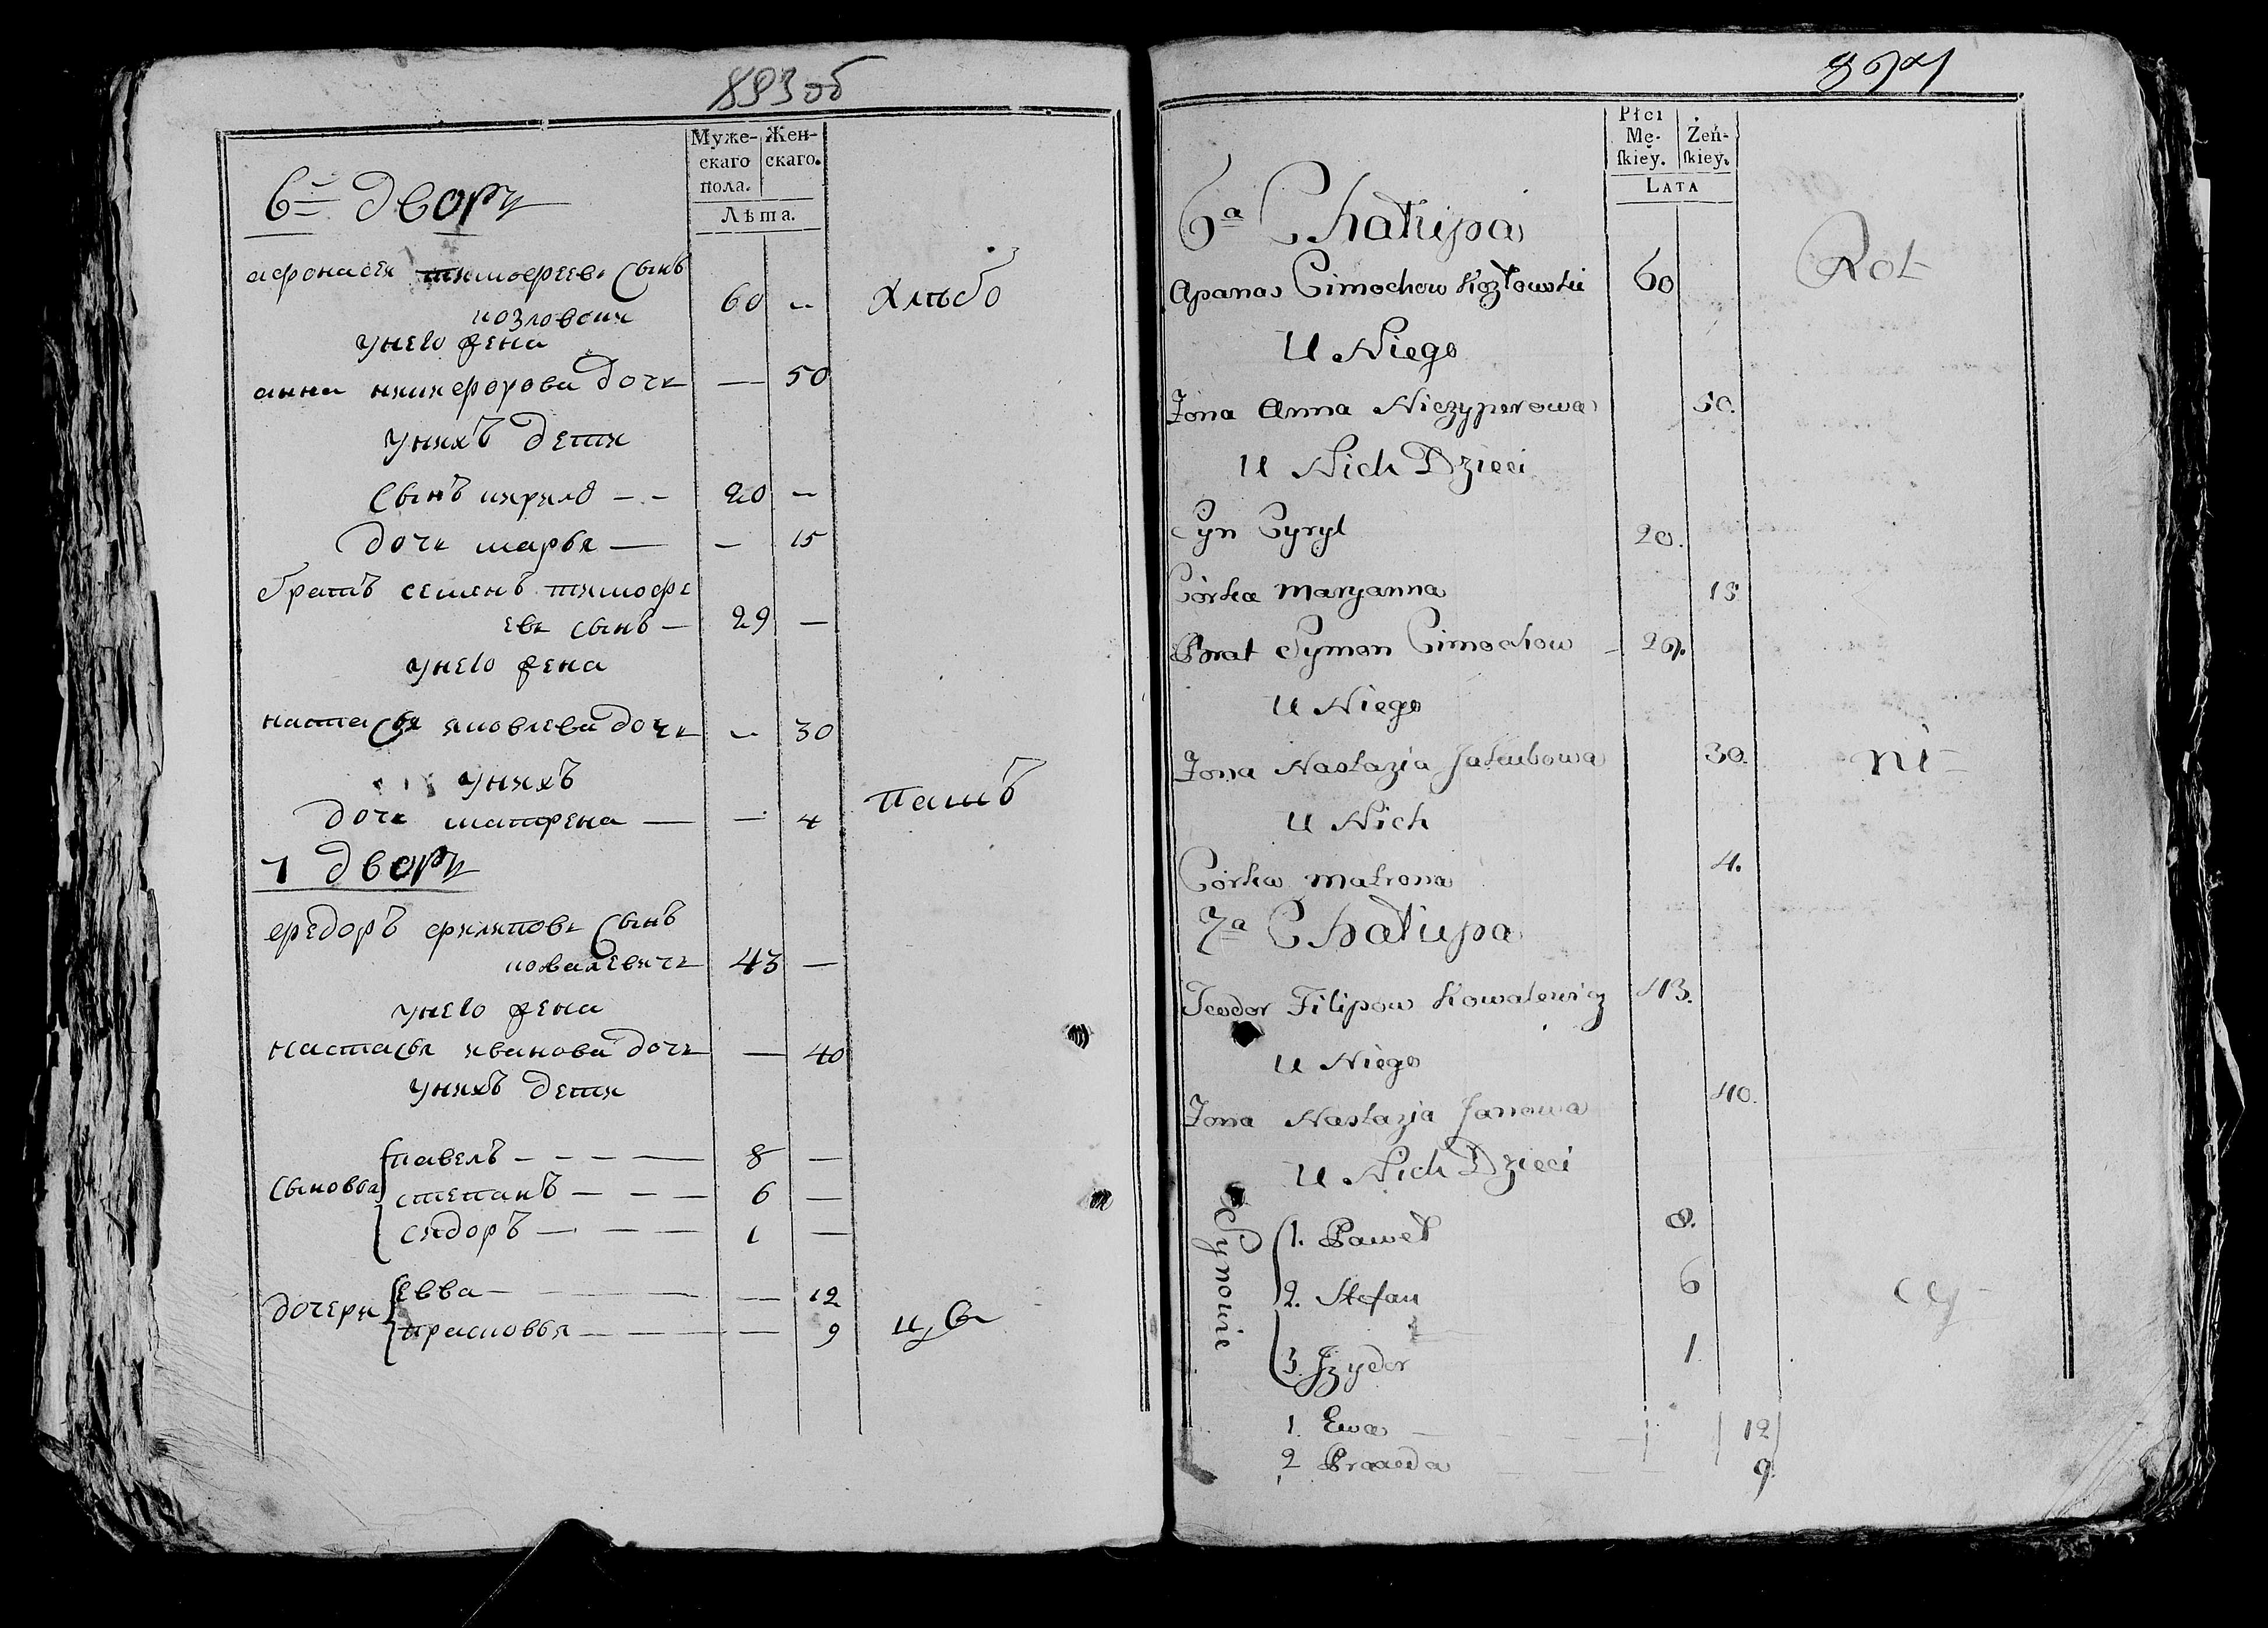 893об
Муже-
скаго
пола.
Жен-
скаго.
Лѣта.
6й дворъ
афонасеи тимофеевъ сынъ
козловски 60 —
хлѣбо
унего жена
анна никифорова дочь — 50
унихъ дети
сынъ кирило — - 20 —
дочь марья — — 15
братъ семенъ тимофе
евъ сынъ — 29 —
унего жена
настасья яковлева дочь — 30
унихъ
дочь матрена — — 4
пашъ
7 дворъ
федоръ филиповъ сынъ
ковалевичь 43 —
унего жена
настасья иванова дочь — 40
унихъ дети
сыновья
павелъ - - - — 8 —
степанъ — — — 6 —
сидоръ — — — 1 —
дочери
Евва — — — 12
прасковья — — — — 9
894
Płci
Mę-
ſkiéy.
Żeń-
ſkiey.
LATA
6a Chałupa
Rol-
Apanas Cimochow Kozłowski 60
U Niego
Żona Anna Niczyperowa 50.
U Nich Dzieci
Syn Cyryl 20.
Córka Maryanna 15
Brat Symon Cimochow — 29.
U Niego
Żona Nastazia Jakubowa 30.
ni-
U Nich
Córka Matrona 4.
7a Chałupa
Teodor Filipow Kowalewicz 43.
U Niego
Żona Nastazia Janowa 40.
U Nich Dzieci
Synowie
1. Paweł 8.
2. Stefan 6
cy
3. Jzydor 1.
1. Ewa — 12
2 9